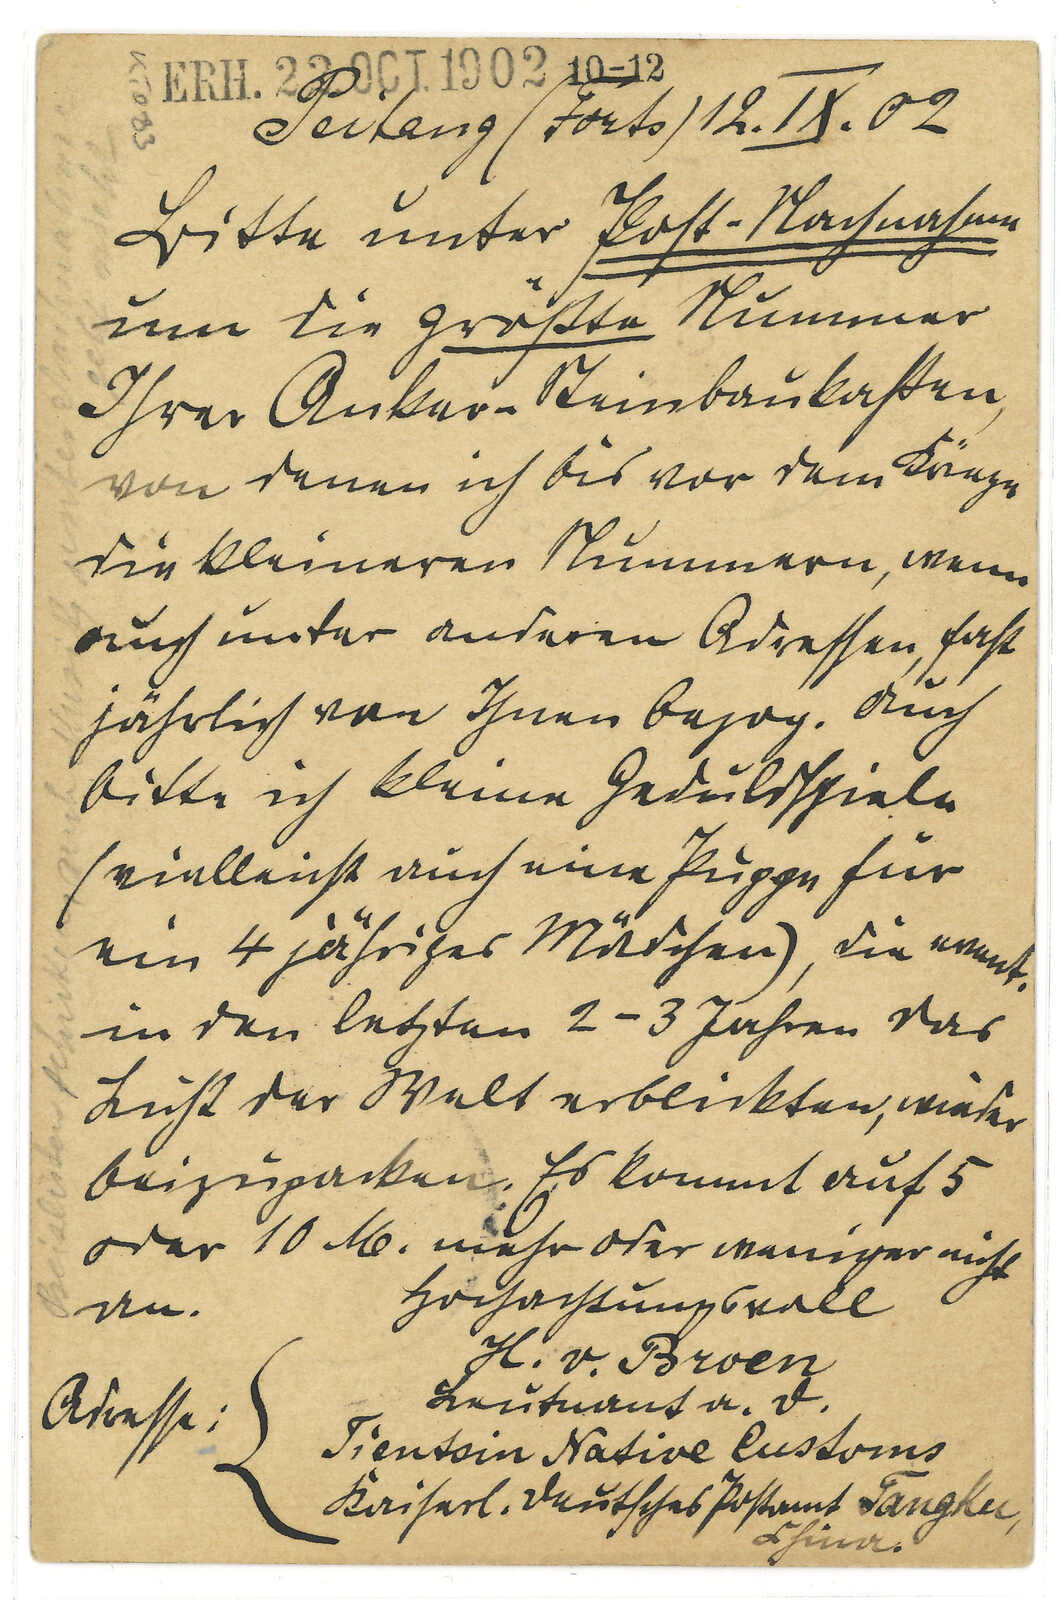 ERH. 22.OCT.1902 10-12
Peitang (Forts) 12.IX.02
Bitte unter Post-Nachnahme
um die größte Nummer
Ihrer Anker-Steinbaukasten,
von denen ich bis vor dem Kriege
die kleineren Nummern, wenn
auch unter anderen Adressen, fast
jährlich von Ihnen bezog. Auch
bitte ich kleine Geduldspiele
(vielleicht auch eine Puppe für
ein 4 jähriges Mädchen), die event.
in den letzten 2-3 Jahren das
Licht der Welt erblickten, wieder
beizupacken. Es kommt auf 5
oder 10 M. mehr oder weniger nicht
an. Hochachtungsvoll
H. v. Broen
Leutnant a. D.
Adresse:
Tientsin Native Customs
Kaiserl. Deutsches Postamt Tangku,
China.